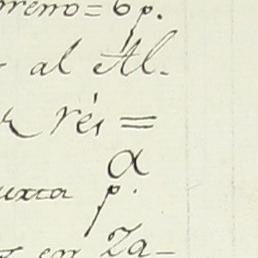 oreno = 6 p.
al Al-
rés =
a
uxta p.
en Za-